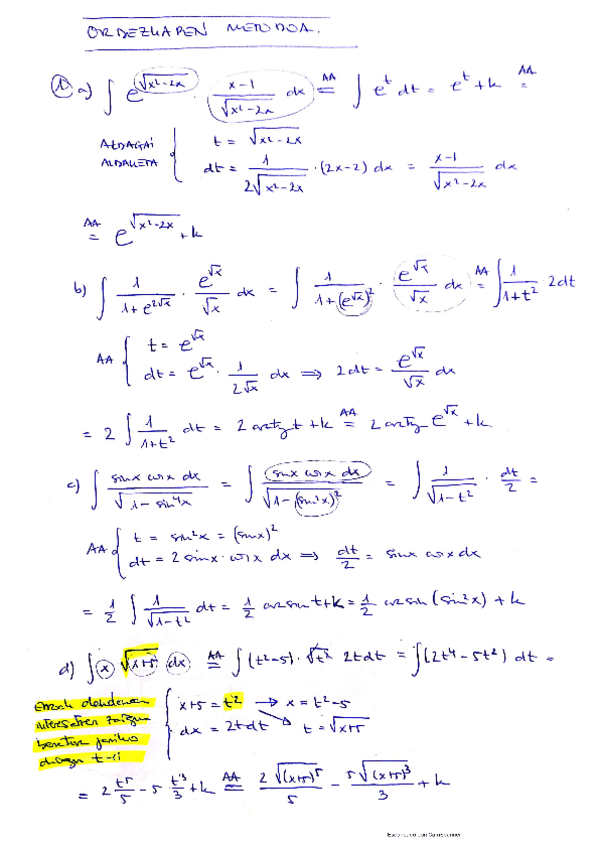 ORDEZKAPEN METODOA.
① a) ∫ e^√(x²-2x) · (x-1)/√(x²-2x) dx =^AA ∫ e^t dt = e^t + k =^AA
ALDAGAI ALDAKETA { t = √(x²-2x)
dt = 1/(2√(x²-2x)) · (2x-2) dx = (x-1)/√(x²-2x) dx
=^AA e^√(x²-2x) + k
b) ∫ 1/(1+e^(2√x)) · e^√x/√x dx = ∫ 1/(1+(e^√x)²) · e^√x/√x dx =^AA ∫ 1/(1+t²) · 2dt
AA { t = e^√x
dt = e^√x · 1/(2√x) dx ⇒ 2dt = e^√x/√x dx
= 2 ∫ 1/(1+t²) dt = 2 arctg t + k =^AA 2 arctg e^√x + k
c) ∫ sinx cosx dx/√(1-sin⁴x) = ∫ sinx cosx dx/√(1-(sin²x)²) = ∫ 1/√(1-t²) · dt/2 =
AA { t = sin²x = (sinx)²
dt = 2 sinx · cosx dx ⇒ dt/2 = sinx cosx dx
= 1/2 ∫ 1/√(1-t²) dt = 1/2 arcsin t + k = 1/2 arcsin (sin²x) + k
d) ∫ x √(x+5) dx =^AA ∫ (t²-5) · √t² 2t dt = ∫ (2t⁴-5t²) dt =
Erroak daudenean { x+5 = t² → x = t²-5
interesatzen zaigu → t = √(x+5)
t-ri dx = 2t dt
= 2 t⁵/5 - 5 t³/3 + k =^AA 2√(x+5)⁵/5 - 5√(x+5)³/3 + k
Escaneado con CamScanner